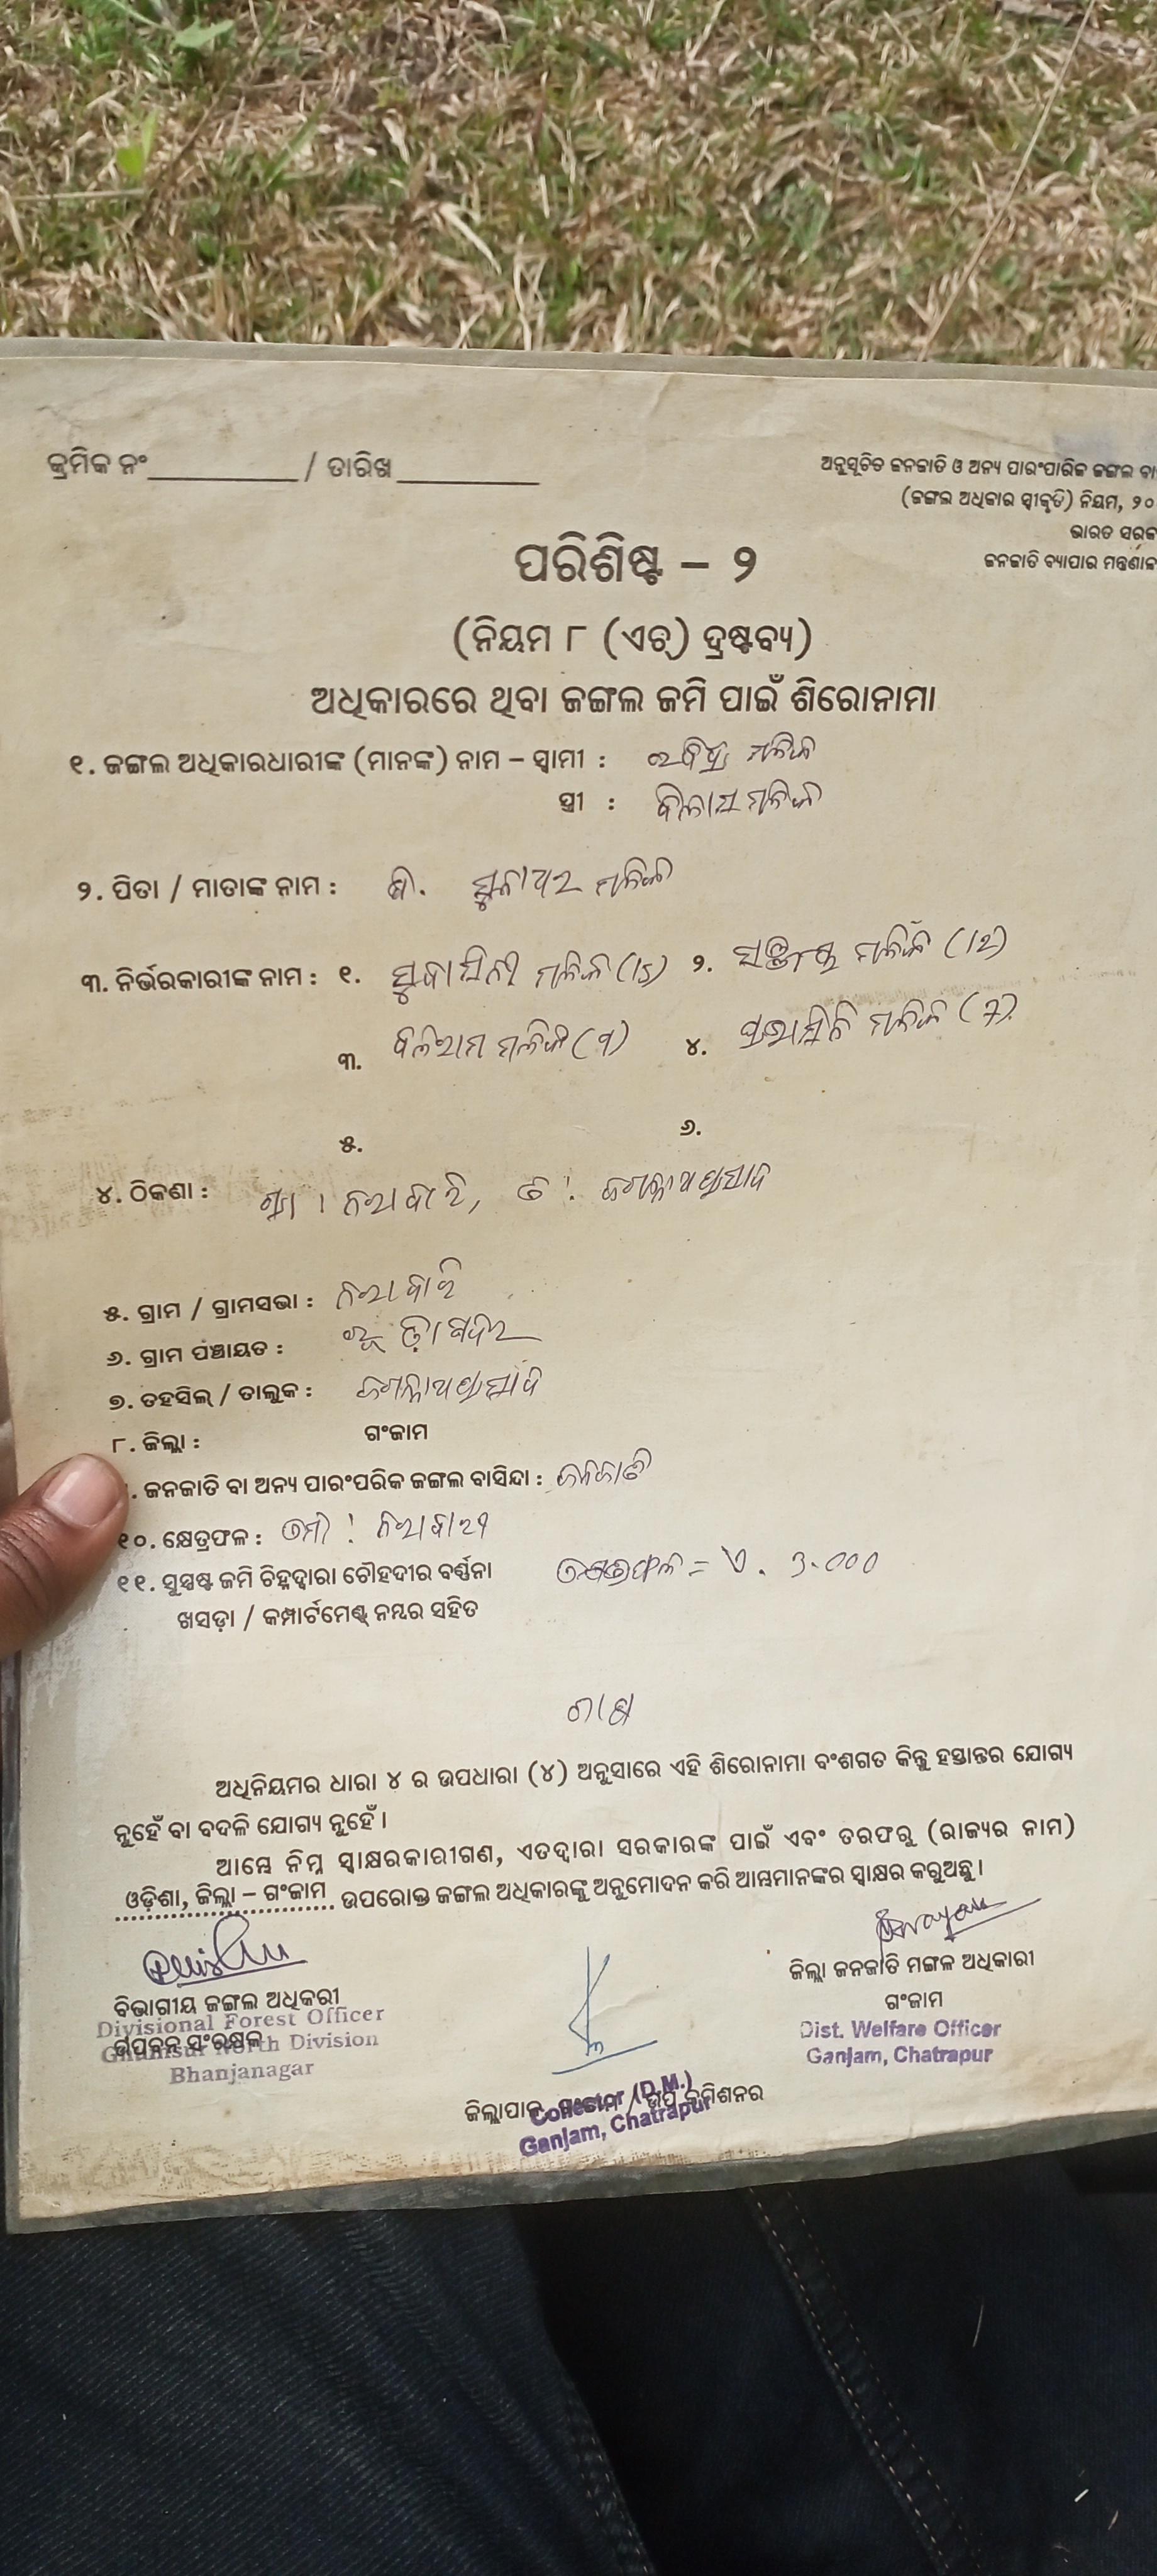 କ୍ରମିକ ନଂ__________ / ତାରିଖ__________
ଅନୁସୂଚିତ ଜନଜାତି ଓ ଅନ୍ୟ ପାରଂପାରିକ ଜଙ୍ଗଲ ବା
(ଜଙ୍ଗଲ ଅଧିକାର ସ୍ୱୀକୃତି) ନିୟମ, ୨୦
ଭାରତ ସରକ
ଜନଜାତି ବ୍ୟାପାର ମନ୍ତ୍ରଣାଳ
ପରିଶିଷ୍ଟ – ୨
(ନିୟମ ୮ (ଏଚ୍) ଦ୍ରଷ୍ଟବ୍ୟ)
ଅଧିକାରରେ ଥିବା ଜଙ୍ଗଲ ଜମି ପାଇଁ ଶିରୋନାମା
୧. ଜଙ୍ଗଲ ଅଧିକାରଧାରୀଙ୍କ (ମାନଙ୍କ) ନାମ – ସ୍ୱାମୀ : ମଳିକ
ସ୍ତ୍ରୀ : ମଳିକ
୨. ପିତା / ମାତାଙ୍କ ନାମ : ମଳିକ
୩. ନିର୍ଭରକାରୀଙ୍କ ନାମ : ୧. ସୁବାସିନୀ ମଳିକ (15) ୨. ମଳିକ (12)
୩. ବଳିରାମ ମଳିକ (୩) ୪. ମଳିକ (7)
୫. ୬.
୪. ଠିକଣା : ଜଗନ୍ନାଥପ୍ରସାଦ
୫. ଗ୍ରାମ / ଗ୍ରାମସଭା :
୬. ଗ୍ରାମ ପଞ୍ଚାୟତ :
୭. ତହସିଲ୍ / ତାଲୁକ : ଜଗନ୍ନାଥପ୍ରସାଦ
୮. ଜିଲ୍ଲା : ଗଂଜାମ
. ଜନଜାତି ବା ଅନ୍ୟ ପାରଂପରିକ ଜଙ୍ଗଲ ବାସିନ୍ଦା : ଜନଜାତି
୧୦. କ୍ଷେତ୍ରଫଳ :
୧୧. ସୁସ୍ପଷ୍ଟ ଜମି ଚିହ୍ନଦ୍ୱାରା ଚୌହଦୀର ବର୍ଣ୍ଣନା କ୍ଷେତ୍ରଫଳ = ଏ. 3.000
ଖସଡ଼ା / କମ୍ପାର୍ଟମେଣ୍ଟ୍ ନମ୍ବର ସହିତ
ଅଧିନିୟମର ଧାରା ୪ ର ଉପଧାରା (୪) ଅନୁସାରେ ଏହି ଶିରୋନାମା ବଂଶଗତ କିନ୍ତୁ ହସ୍ତାନ୍ତର ଯୋଗ୍ୟ
ନୁହେଁ ବା ବଦଳି ଯୋଗ୍ୟ ନୁହେଁ ।
ଆମ୍ଭେ ନିମ୍ନ ସ୍ୱାକ୍ଷରକାରୀଗଣ, ଏତଦ୍ୱାରା ସରକାରଙ୍କ ପାଇଁ ଏବଂ ତରଫରୁ (ରାଜ୍ୟର ନାମ)
ଓଡ଼ିଶା, ଜିଲ୍ଲା – ଗଂଜାମ ଉପରୋକ୍ତ ଜଙ୍ଗଲ ଅଧିକାରଙ୍କୁ ଅନୁମୋଦନ କରି ଆମ୍ଭମାନଙ୍କର ସ୍ୱାକ୍ଷର କରୁଅଛୁ ।
ବିଭାଗୀୟ ଜଙ୍ଗଲ ଅଧିକରୀ
Divisional Forest Officer
ଉପବନ ସଂରକ୍ଷକ
Ghumsur North Division
Bhanjanagar
ଜିଲ୍ଲା ଜନଜାତି ମଙ୍ଗଳ ଅଧିକାରୀ
ଗଂଜାମ
Dist. Welfare Officer
Ganjam, Chatrapur
ଜିଲ୍ଲାପାଳ, ଗଂଜାମ / ଉପ କମିଶନର
Collector (D.M.)
Ganjam, Chatrapur